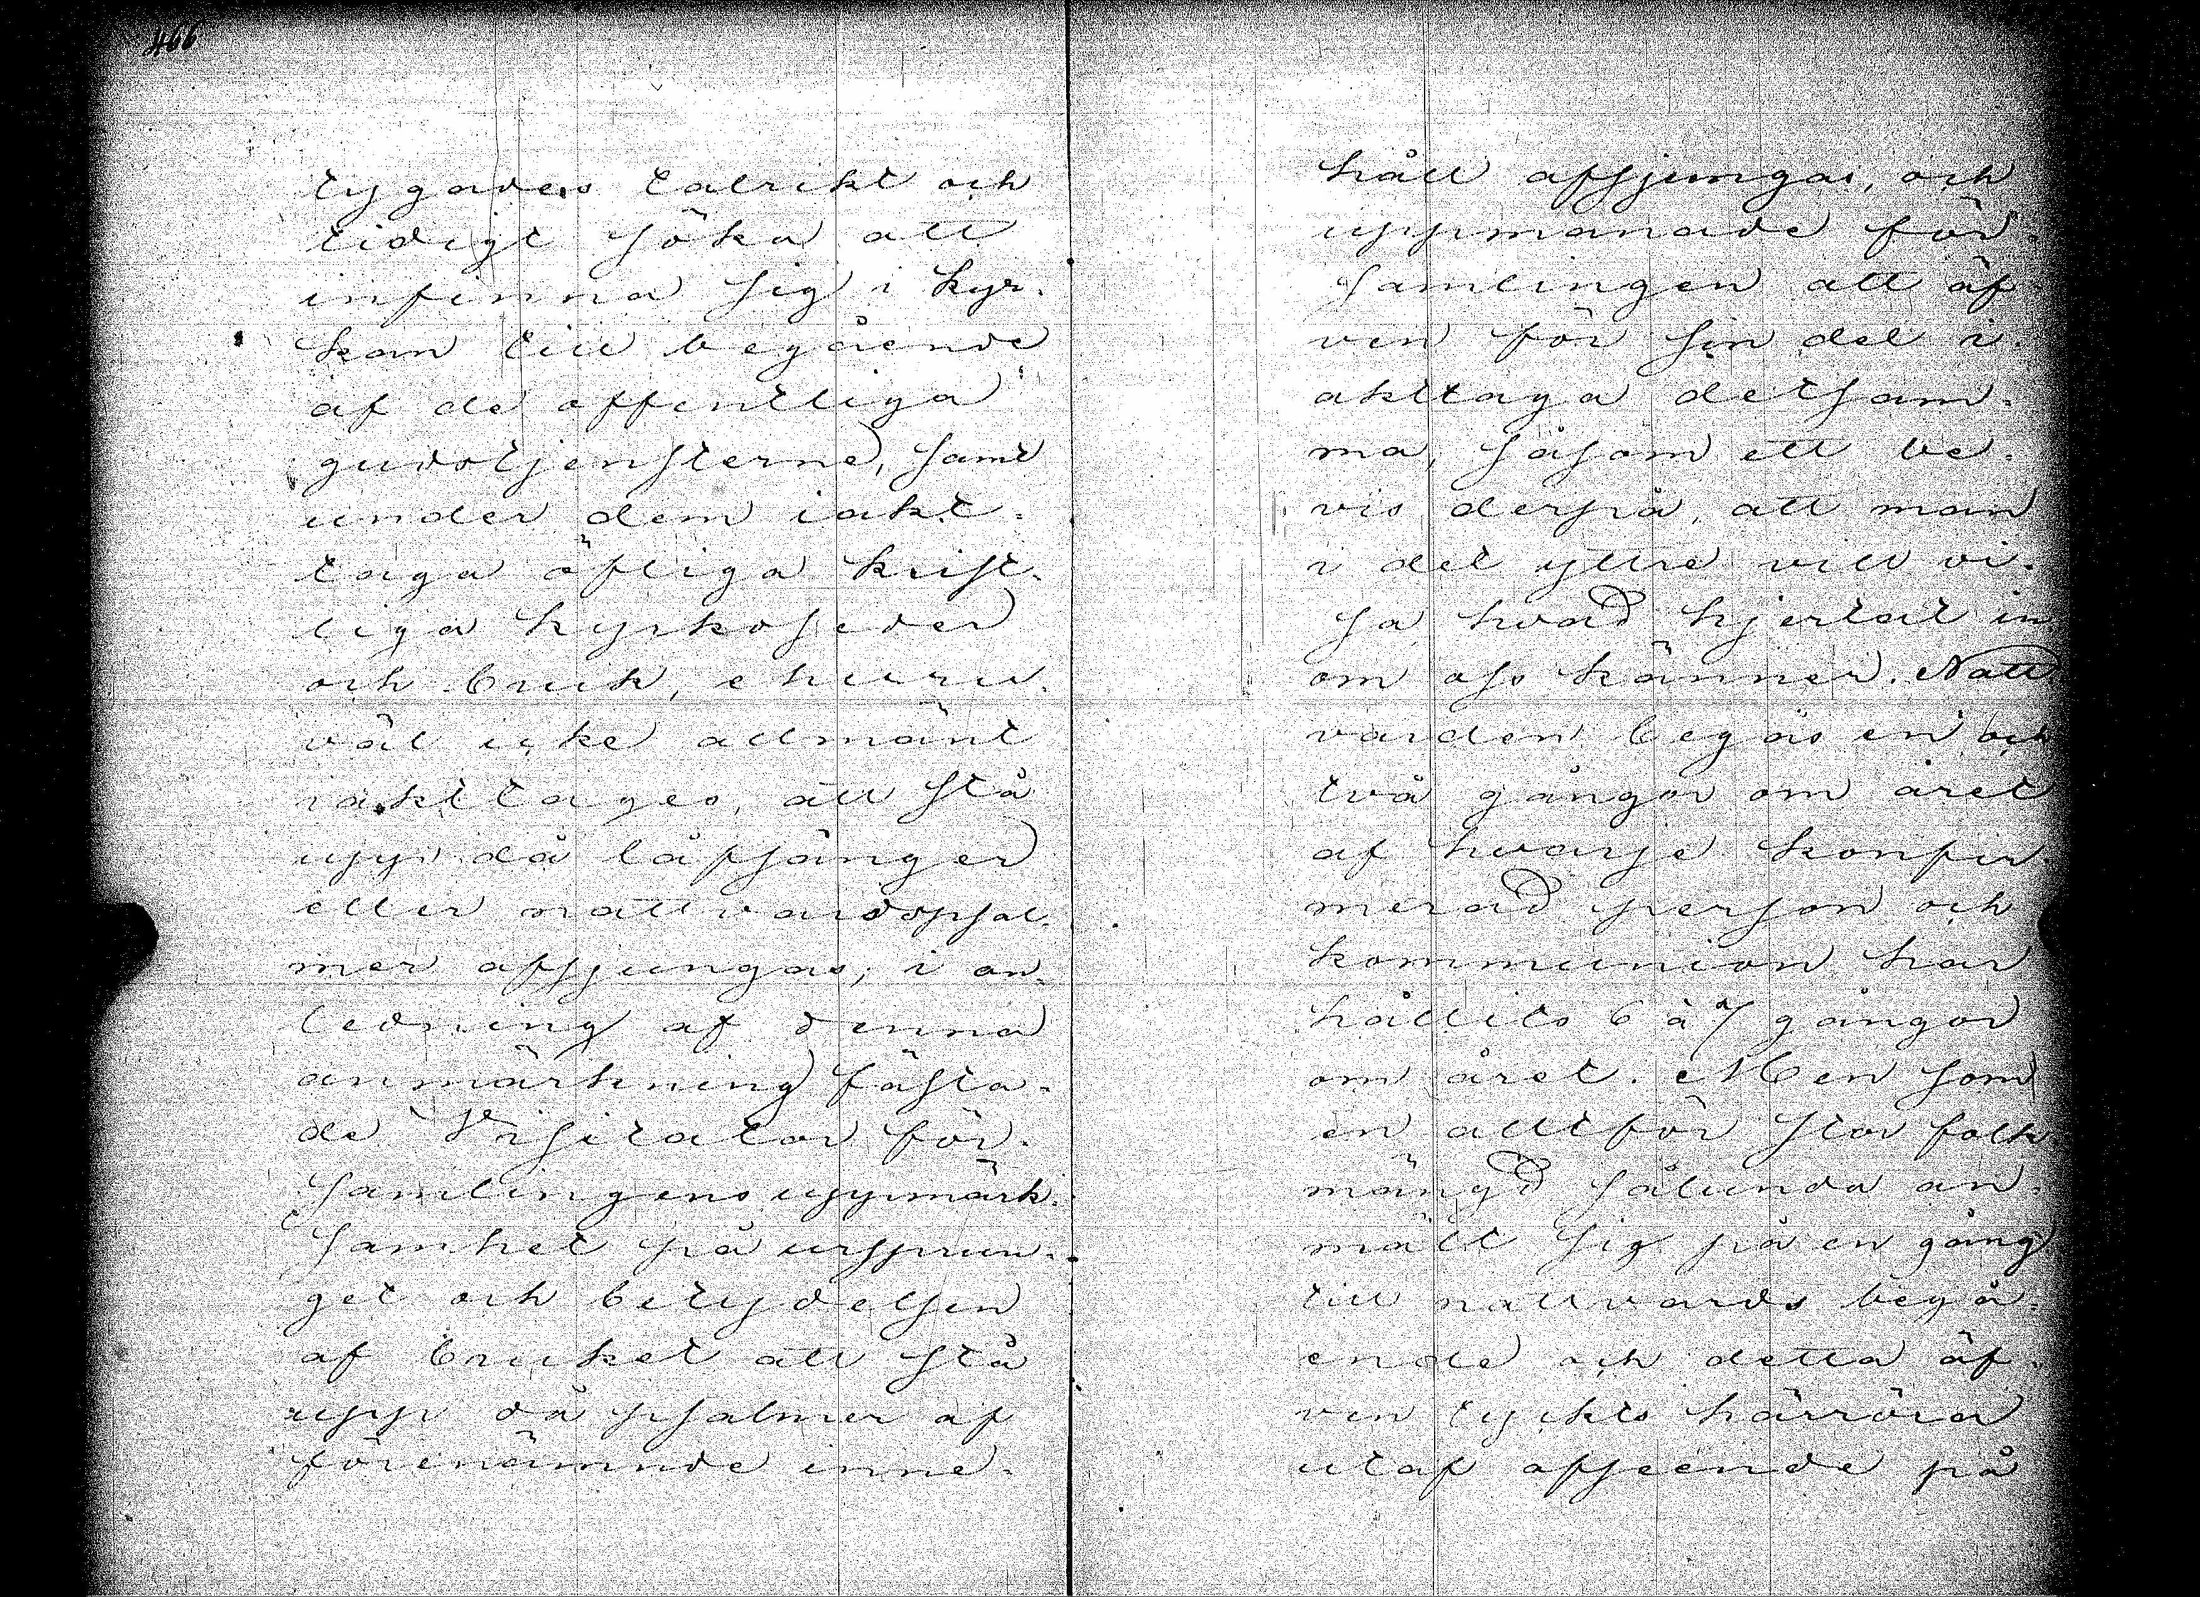 466
tygades talrikt och
tidigt söka att
infinna sig i kyr-
kan till begående
af de offentliga
gudstjensterne, samt
under dem iakt-
taga öfliga krist-
liga kyrkoseder
och bruk, ehuru-
väl icke allmänt
iakttages, att stå
upp då låfsånger
eller nattvardspsal-
mer afsjungas; i an-
ledning af denna
anmärkning fästa-
de Visitator för-
samlingens uppmärk-
samhet på ursprun-
get och betydelsen
af bruket att stå
upp då psalmer af
förenämnde inne-
håll afsjungas, och
uppmanade för-
samlingen att äf
ven för sin del i-
akttaga detsam-
ma, såsom ett be-
vis derpå, att man
i det yttre vill vi-
sa hvad hjertat in
om oss känner. Natt
varden begås en och
två gångor om året
af hvarje konfir-
merad person och
kommunion har
hållits 6 à 7 gångor
om året. Men som
en alltför stor folk
mängd sålunda an-
mält sig på en gång
till nattvards begå-
ende och detta äf-
ven tyckts härröra
utaf afseende på